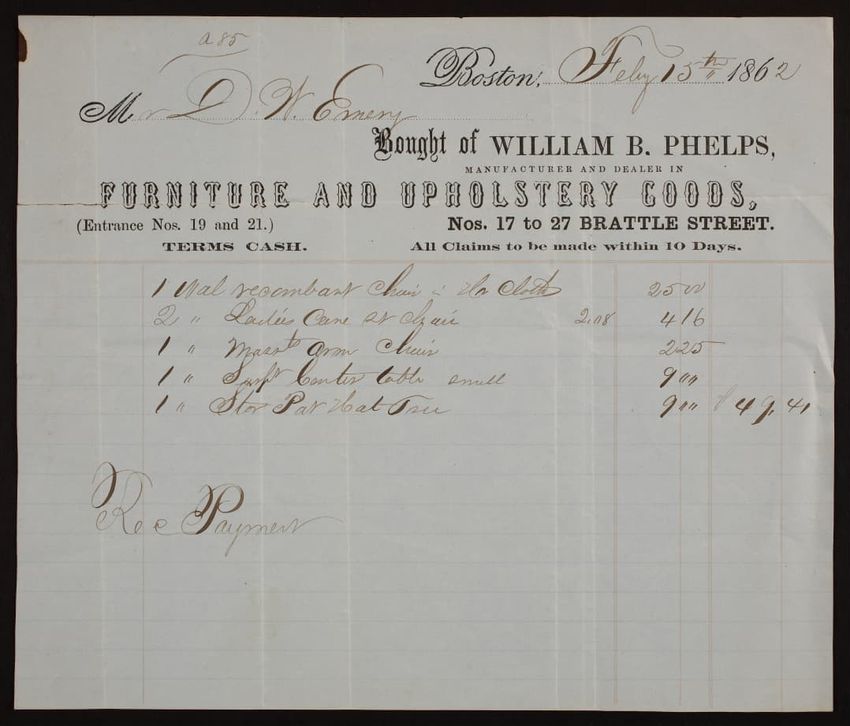 a 85
Boston, Feby 15th 1862
Mr D. W. Emery
Bought of WILLIAM B. PHELPS,
MANUFACTURER AND DEALER IN
FURNITURE AND UPHOLSTERY GOODS,
(Entrance Nos. 19 and 21.) Nos. 17 to 27 BRATTLE STREET.
TERMS CASH. All Claims to be made within 10 Days.
1 Wal recombant Chair in Hr Cloth 25 00
2 " Ladies Cane St Chair 2.08 4 16
1 " Masst Arm Chair 2 25
1 " Center table small 9 00
1 " Pat Hat Tree 9 00 $ 49,41
Rec Payment